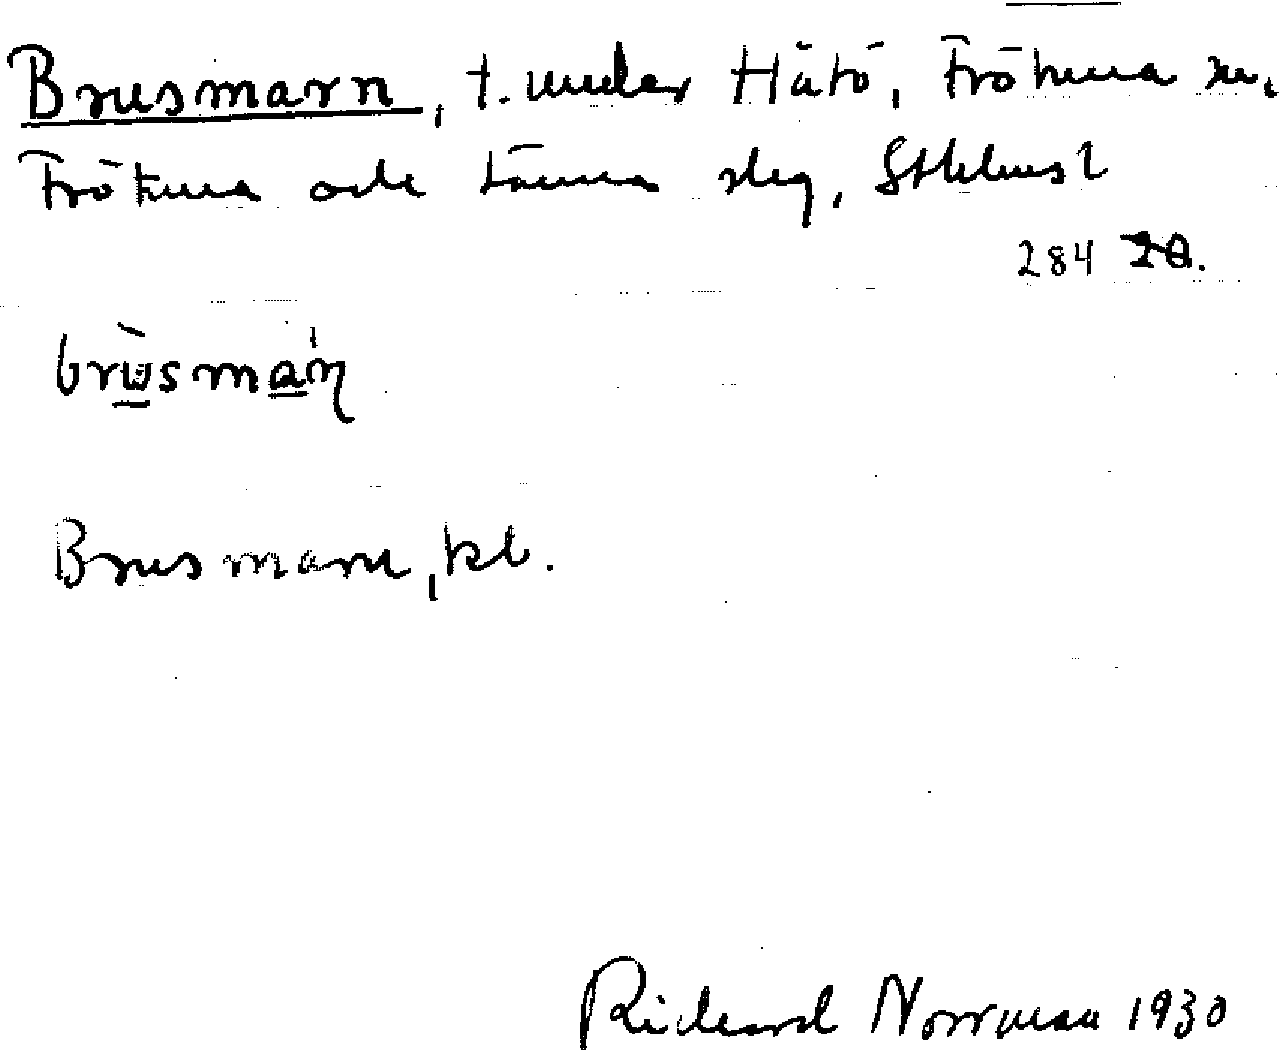 Brusmarn, t. under Håtö, Frötuna sn.
Frötuna och Länna skg, Sthlms l
284
brùsma̍ɳ
Brusmarn, kl.
Rickard Norrman 1930